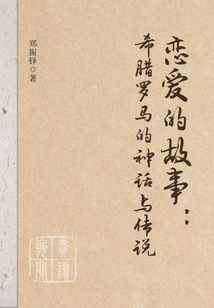 恋爱的故事：
希腊罗马的神话与传说
郑振铎◎著